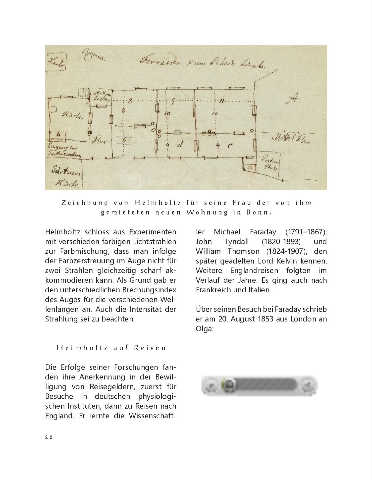 Zeichnung von Helmholtz für seine Frau der von ihm
gemieteten neuen Wohnung in Bonn.
Helmholtz schloss aus Experimenten
mit verschieden farbigen Lichtstrahlen
zur Farbmischung, dass man infolge
der Farbzerstreuung im Auge nicht für
zwei Strahlen gleichzeitig scharf ak-
kommodieren kann. Als Grund gab er
den unterschiedlichen Brechungsindex
des Auges für die verschiedenen Wel-
lenlängen an. Auch die Intensität der
Strahlung sei zu beachten.
Helmholtz auf Reisen
Die Erfolge seiner Forschungen fan-
den ihre Anerkennung in der Bewil-
ligung von Reisegeldern, zuerst für
Besuche in deutschen physiologi-
schen Instituten, dann zu Reisen nach
England. Er lernte die Wissenschaft-
ler Michael Faraday (1791-1867),
John Tyndall (1820-1893) und
William Thomson (1824-1907), den
später geadelten Lord Kelvin kennen.
Weitere Englandreisen folgten im
Verlauf der Jahre. Es ging auch nach
Frankreich und Italien.
Über seinen Besuch bei Faraday schrieb
er am 20. August 1853 aus London an
Olga: